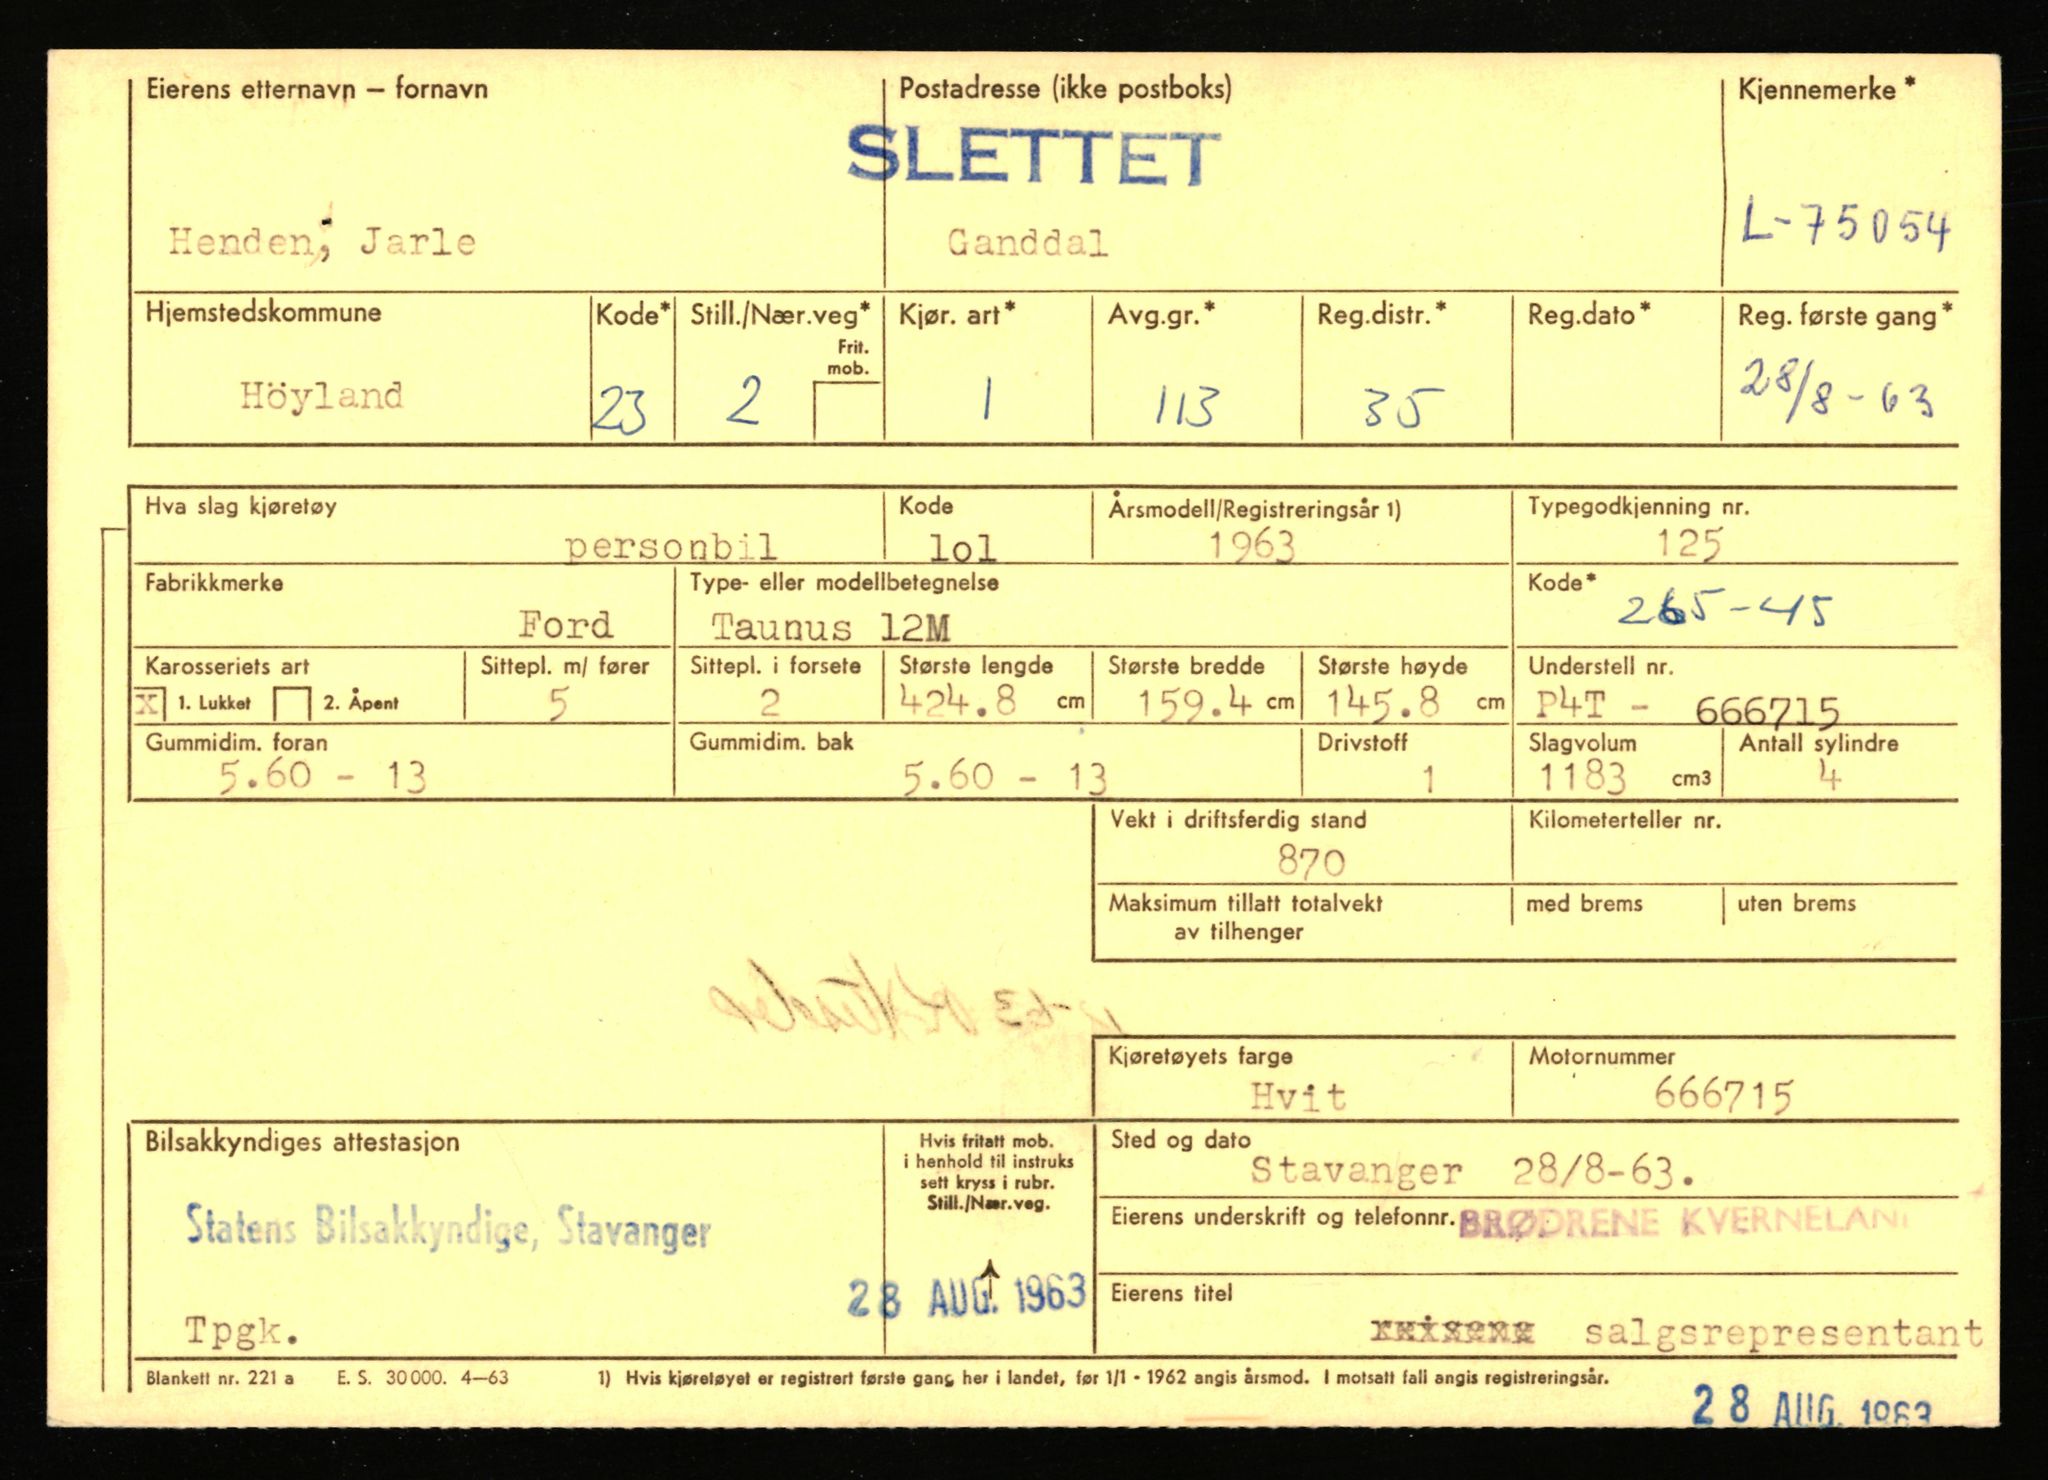 Eierens etternavn – fornavn
Postadresse (ikke postboks)
Kjennemerke *
SLETTET
Henden, Jarle
Ganddal
L-75054
Hjemstedskommune
Kode*
Still./Nær.veg*
Frit. mob.
Kjør. art*
Avg.gr.*
Reg.distr.*
Reg.dato*
Reg. første gang*
Höyland
23
2
1
113
35
28/8-63
Hva slag kjøretøy
Kode
Årsmodell/Registreringsår 1)
Typegodkjenning nr.
personbil
lol
1963
125
Fabrikkmerke
Type- eller modellbetegnelse
Kode*
Ford
Taunus 12M
265-45
Karosseriets art
Sittepl. m/ fører
Sittepl. i forsete
Største lengde
Største bredde
Største høyde
Understell nr.
X 1. Lukket 2. Åpent
5
2
424.8 cm
159.4 cm
145.8 cm
P4T - 666715
Gummidim. foran
Gummidim. bak
Drivstoff
Slagvolum
Antall sylindre
5.60 - 13
5.60 - 13
1
1183 cm3
4
Vekt i driftsferdig stand
Kilometerteller nr.
870
Maksimum tillatt totalvekt
av tilhenger
med brems
uten brems
Kjøretøyets farge
Motornummer
Hvit
666715
Bilsakkyndiges attestasjon
Hvis fritatt mob.
i henhold til instruks
sett kryss i rubr.
Still./Nær.veg.
Sted og dato
Stavanger 28/8-63.
Statens Bilsakkyndige, Stavanger
Eierens underskrift og telefonnr.
BRØDRENE KVERNELAN
28 AUG. 1963
Tpgk.
Eierens titel
salgsrepresentant
Blankett nr. 221 a E. S. 30000. 4–63
1) Hvis kjøretøyet er registrert første gang her i landet, før 1/1 - 1962 angis årsmod. I motsatt fall angis registreringsår.
28 AUG. 1963